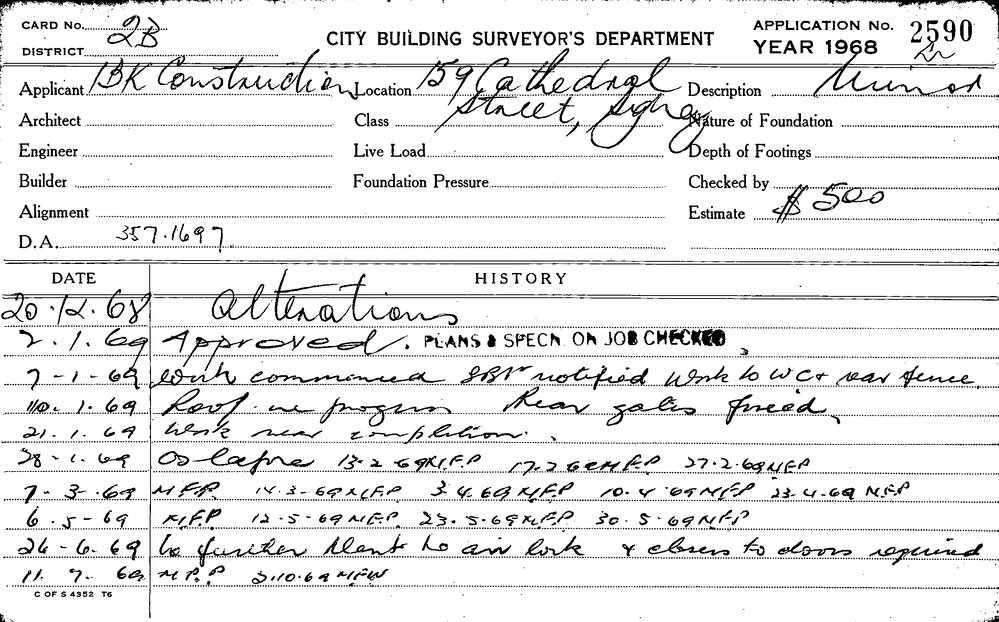 CARD No. 2B
DISTRICT
CITY BUILDING SURVEYOR'S DEPARTMENT
APPLICATION No. 2590
YEAR 1968
Applicant BK Construction Location 159 Cathedral Street, Sydney Description Minor
Architect Class Nature of Foundation
Engineer Live Load Depth of Footings
Builder Foundation Pressure Checked by
Alignment Estimate $500
D.A. 357.1697
DATE HISTORY
20.12.68 Alterations
2.1.69 Approved. PLANS & SPECN. ON JOB CHECKED
7-1-69 Work commenced notified Work to WC & rear fence
10.1.69 Roof in progress Rear gates fixed
21.1.69 Work near completion.
28-1.69 As before 13-2-69 N.F.P 17.2.69 N.F.P 27.2.69 N.F.P
7-3-69 N.F.P. 14.3-69 N.F.P 3.4.69 N.F.P 10.4.69 N.F.P 23.4.69 N.F.P
6.5-69 N.F.P. 12.5-69 N.F.P. 23.5.69 N.F.P 30.5-69 N.F.P
26-6.69 No further to air lock & closers to doors required
11.7.69 N.F.P 3.10.69 N.F.W
C OF S 4352 T6